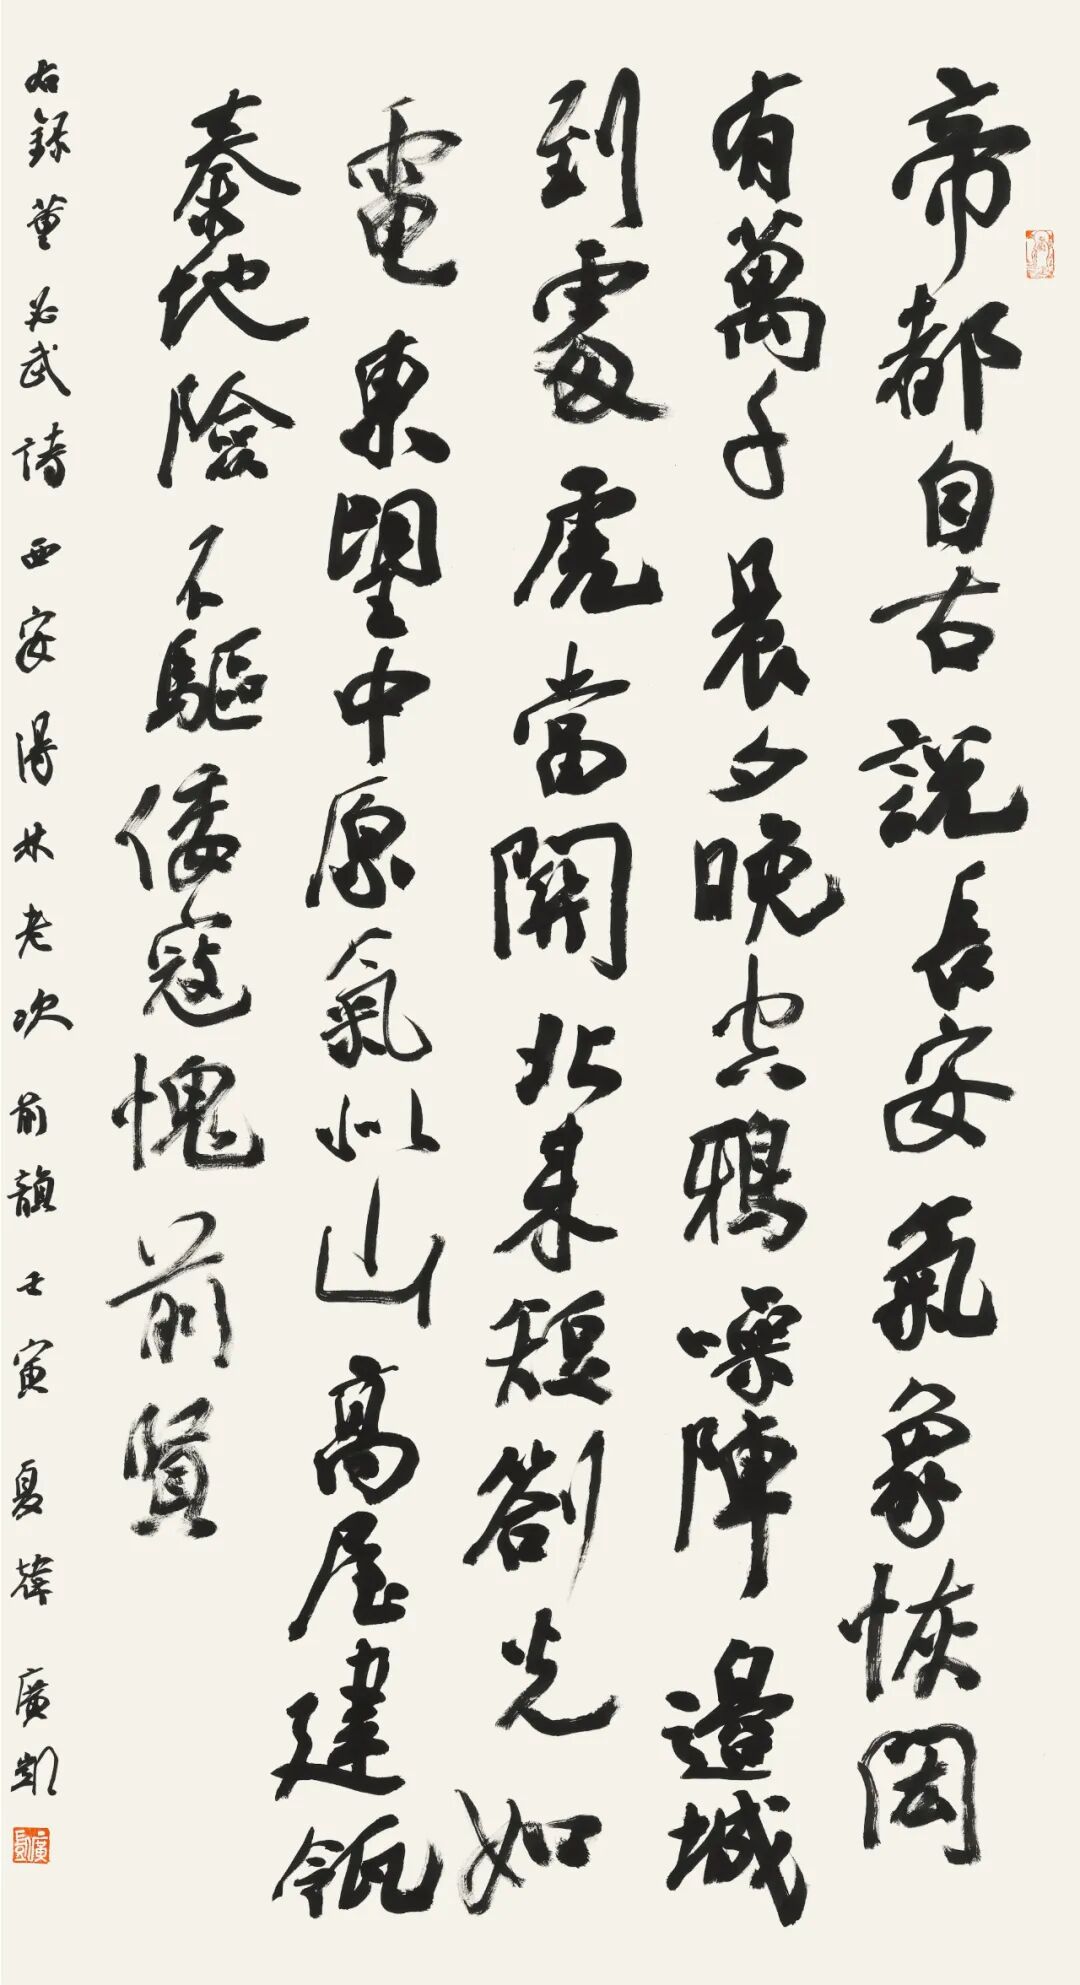 帝都自古說長安氣象恢閎
有萬千晨夕晚空鴉噪陣邊城
到處虎當關北來短劄光如
電東望中原氣似山高屋建瓴
秦地險不驅倭寇愧前賢
右錄董必武詩西安得林老次前韻壬寅夏韓廣凱